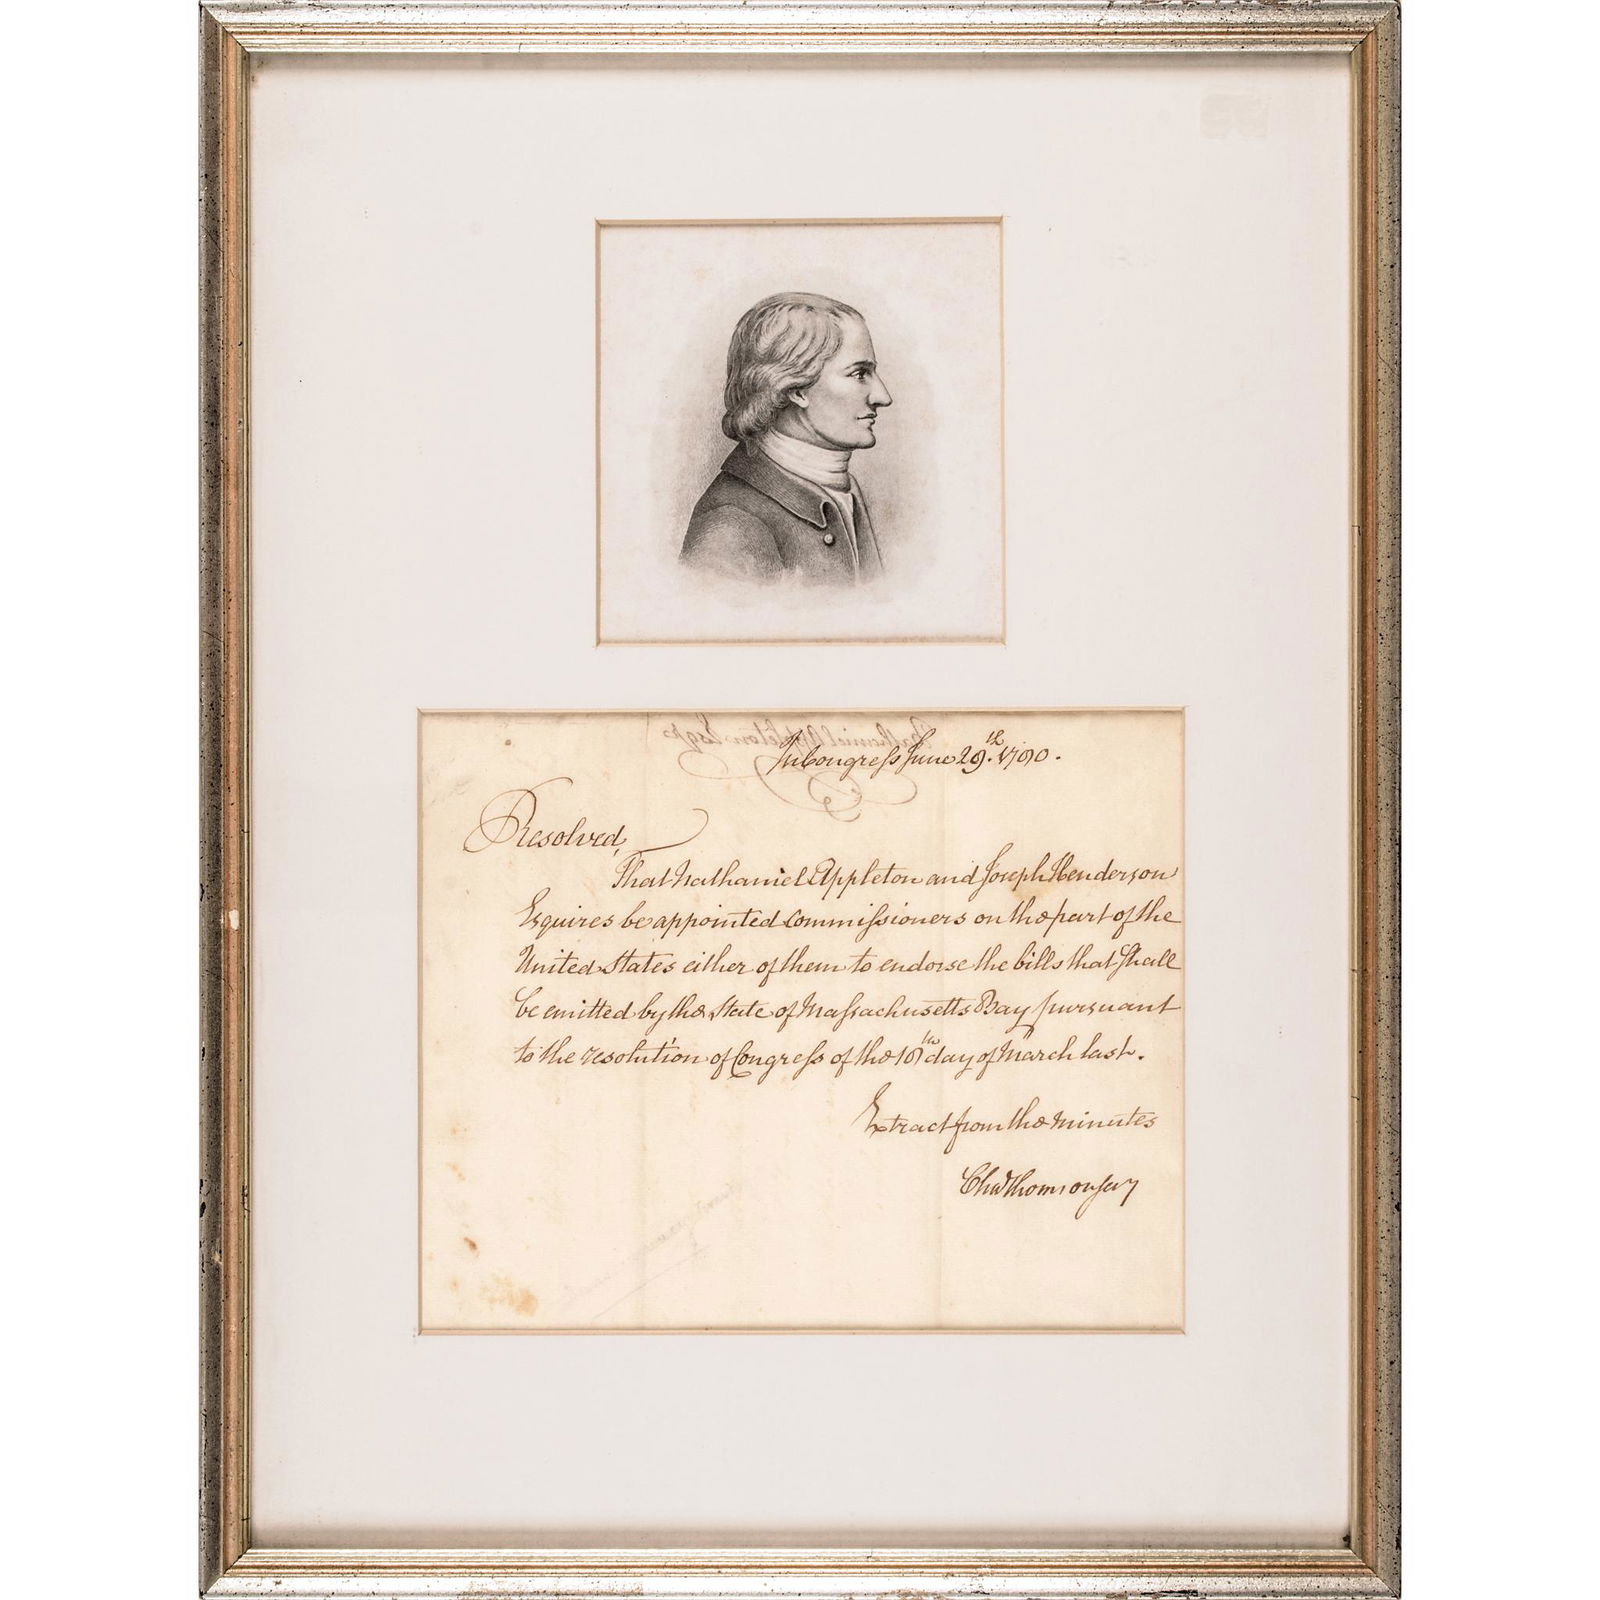 In Congress June 29th. 1780.
Resolved,
That Nathaniel Appleton and Joseph Henderson
Esquires be appointed Commissioners on the part of the
United States either of them to endorse the bills that shall
be emitted by the State of Massachusetts Bay pursuant
to the resolution of Congress of the 18th day of March last.
Extract from the minutes
Chas Thomson secy